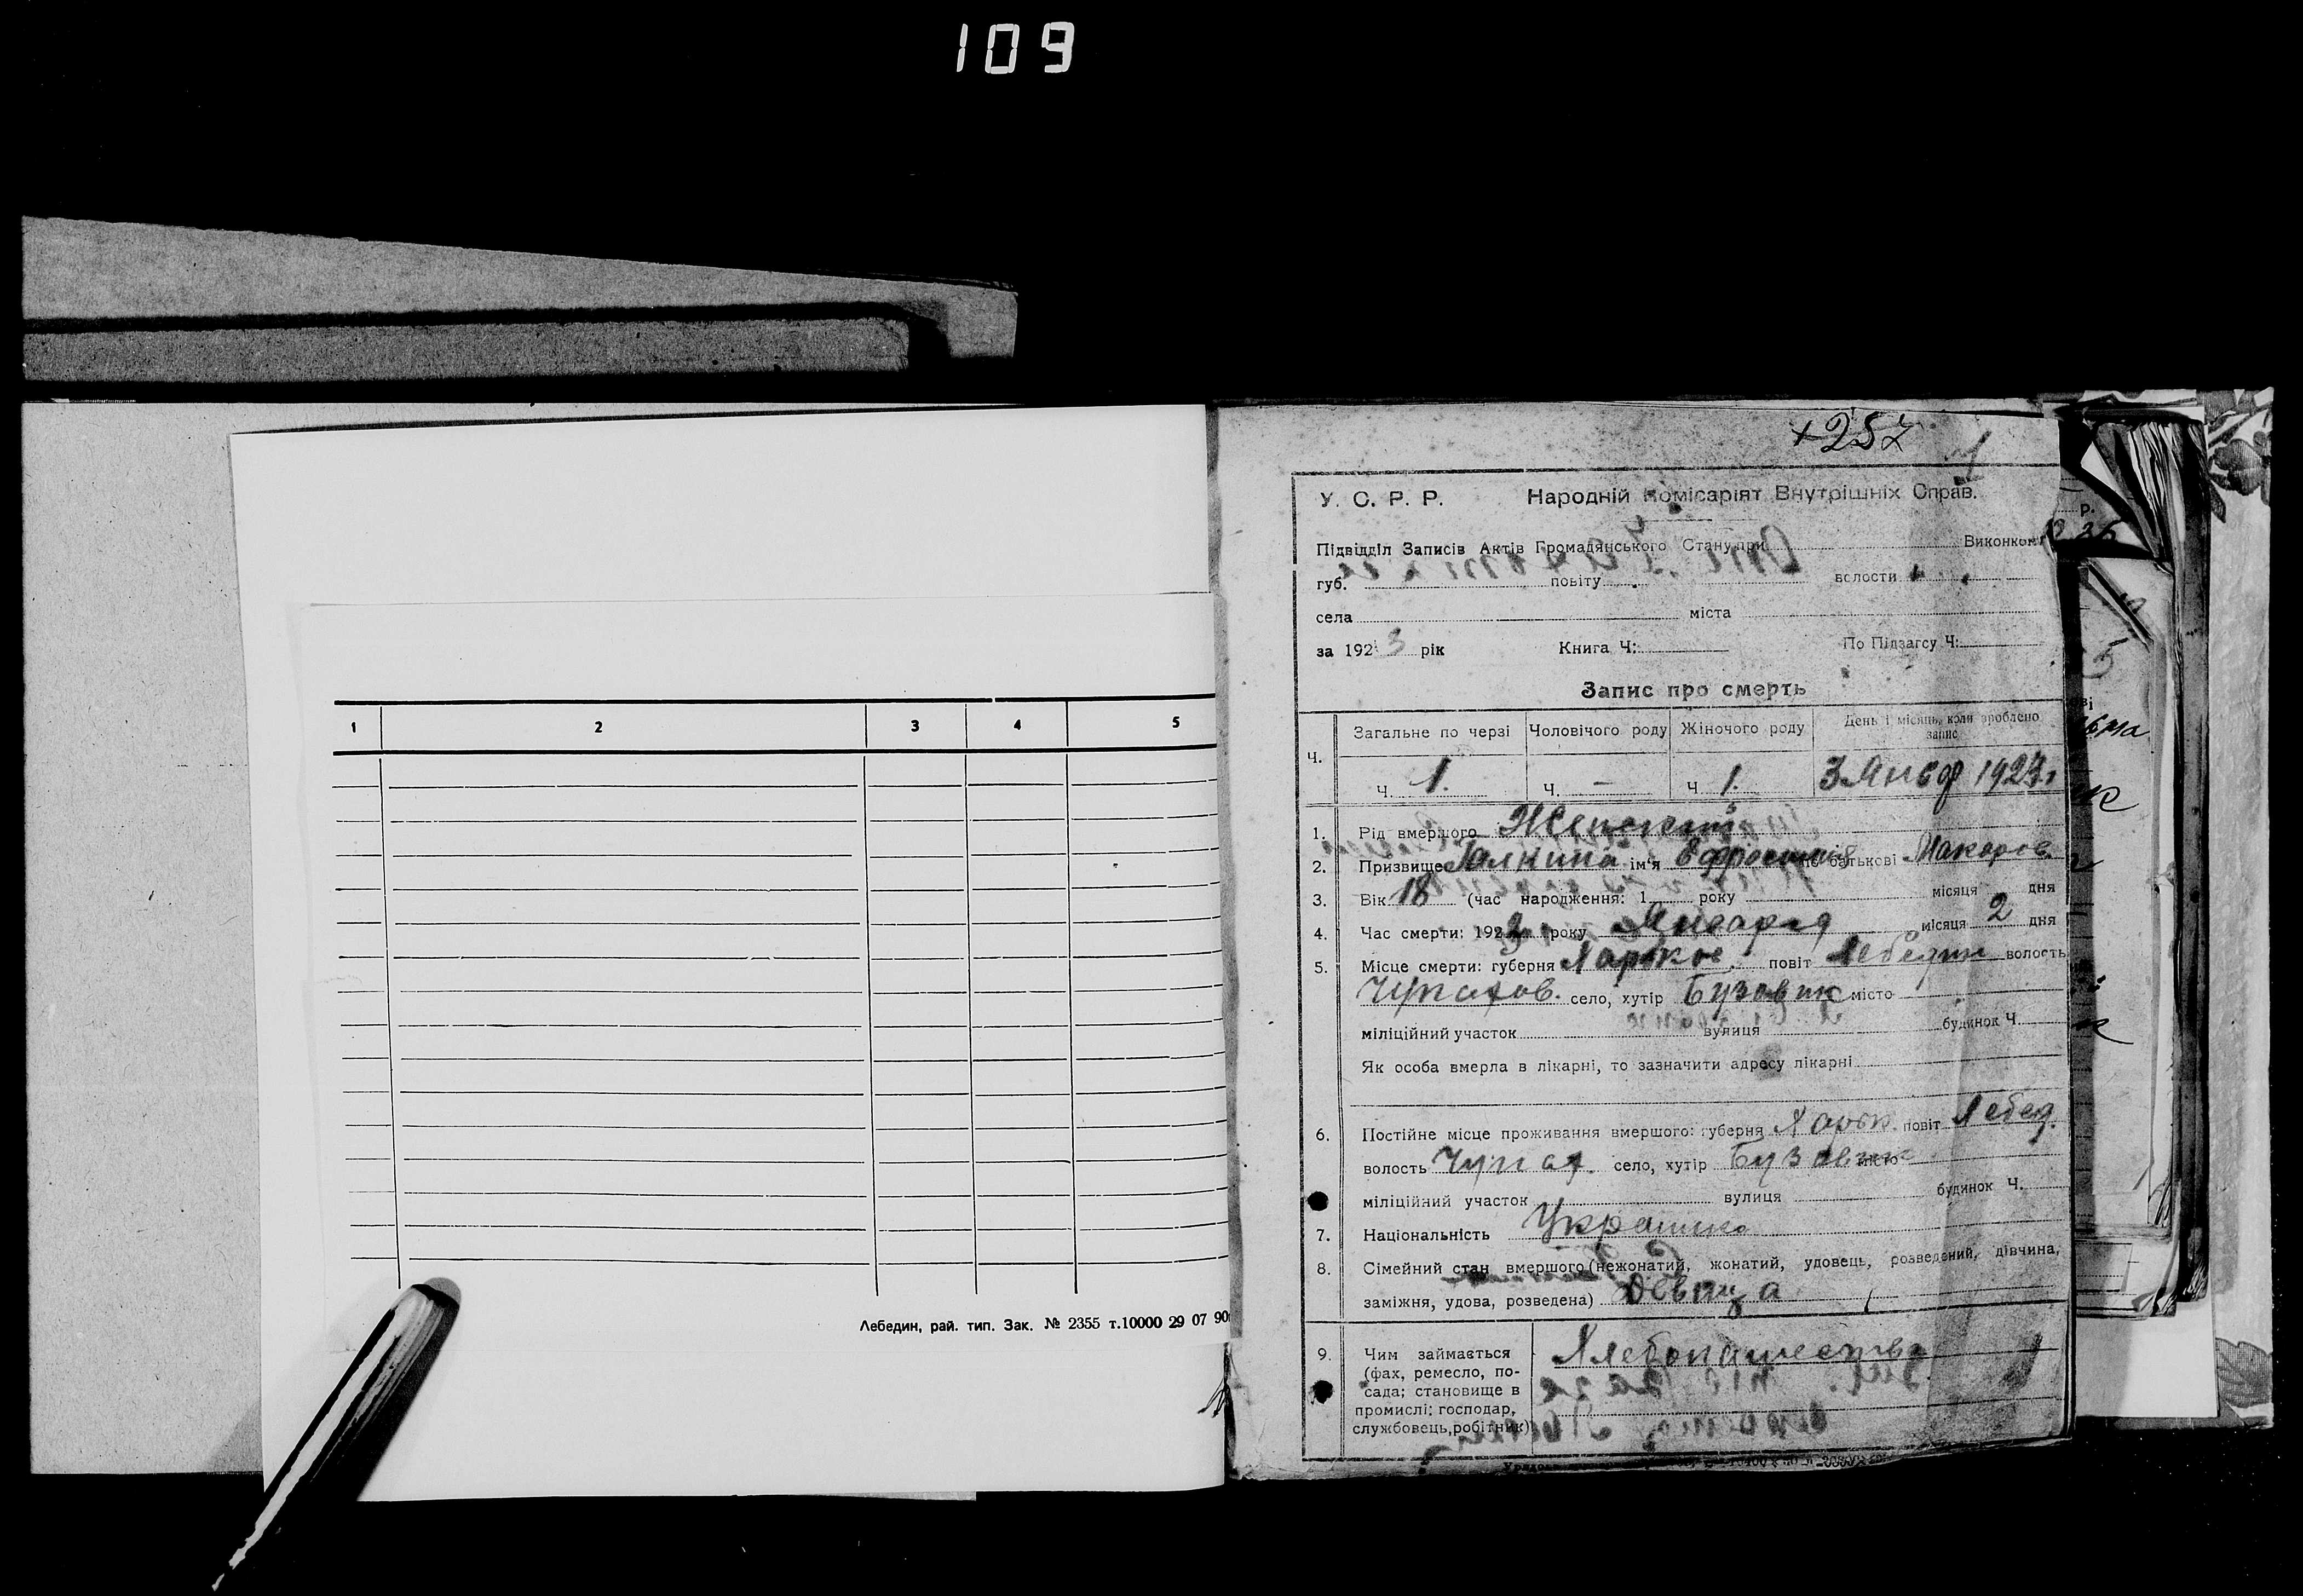 109
1 2 3 4 5
Лебедин, рай. тип. Зак. № 2355 т.10000 29 07 90
+257
1
У. С. Р. Р. Народній Комісаріят Внутрішніх Справ.
Підвідділ Записів Актів Громадянського Стану при Виконком
губ. повіту волости
села міста
за 1923 рік Книга Ч: По Підзагсу Ч:
Запис про смерть
Ч. Загальне по черзі Чоловічого роду Жіночого роду День і місяць, коли зроблено запис
Ч. 1. Ч. — Ч 1. 3 Янв 1923 г
1. Рід вмершого Женский
2. Призвище Галкина ім'я Ефросиния по батькові Макаров.
3. Вік 18 (час народження: 1 року місяця дня
4. Час смерти: 192 року Января місяця 2 дня
5. Місце смерти: губерня Харьков. повіт Лебедин волость
Чупахов. село, хутір Бузовик місто
міліційний участок вулиця будинок Ч.
Як особа вмерла в лікарні, то зазначити адресу лікарні
6. Постійне місце проживання вмершого: губерня Харьк. повіт Лебед.
волость Чупах. село, хутір Бузовик місто
міліційний участок вулиця будинок Ч.
7. Національність
8. Сімейний стан вмершого (нежонатий, жонатий, удовець, розведений, дівчина,
заміжня, удова, розведена) Девица
9. Чим займається Хлебопашество
(фах, ремесло, по-
сада; становище в
промислі; господар,
службовець, робітник)